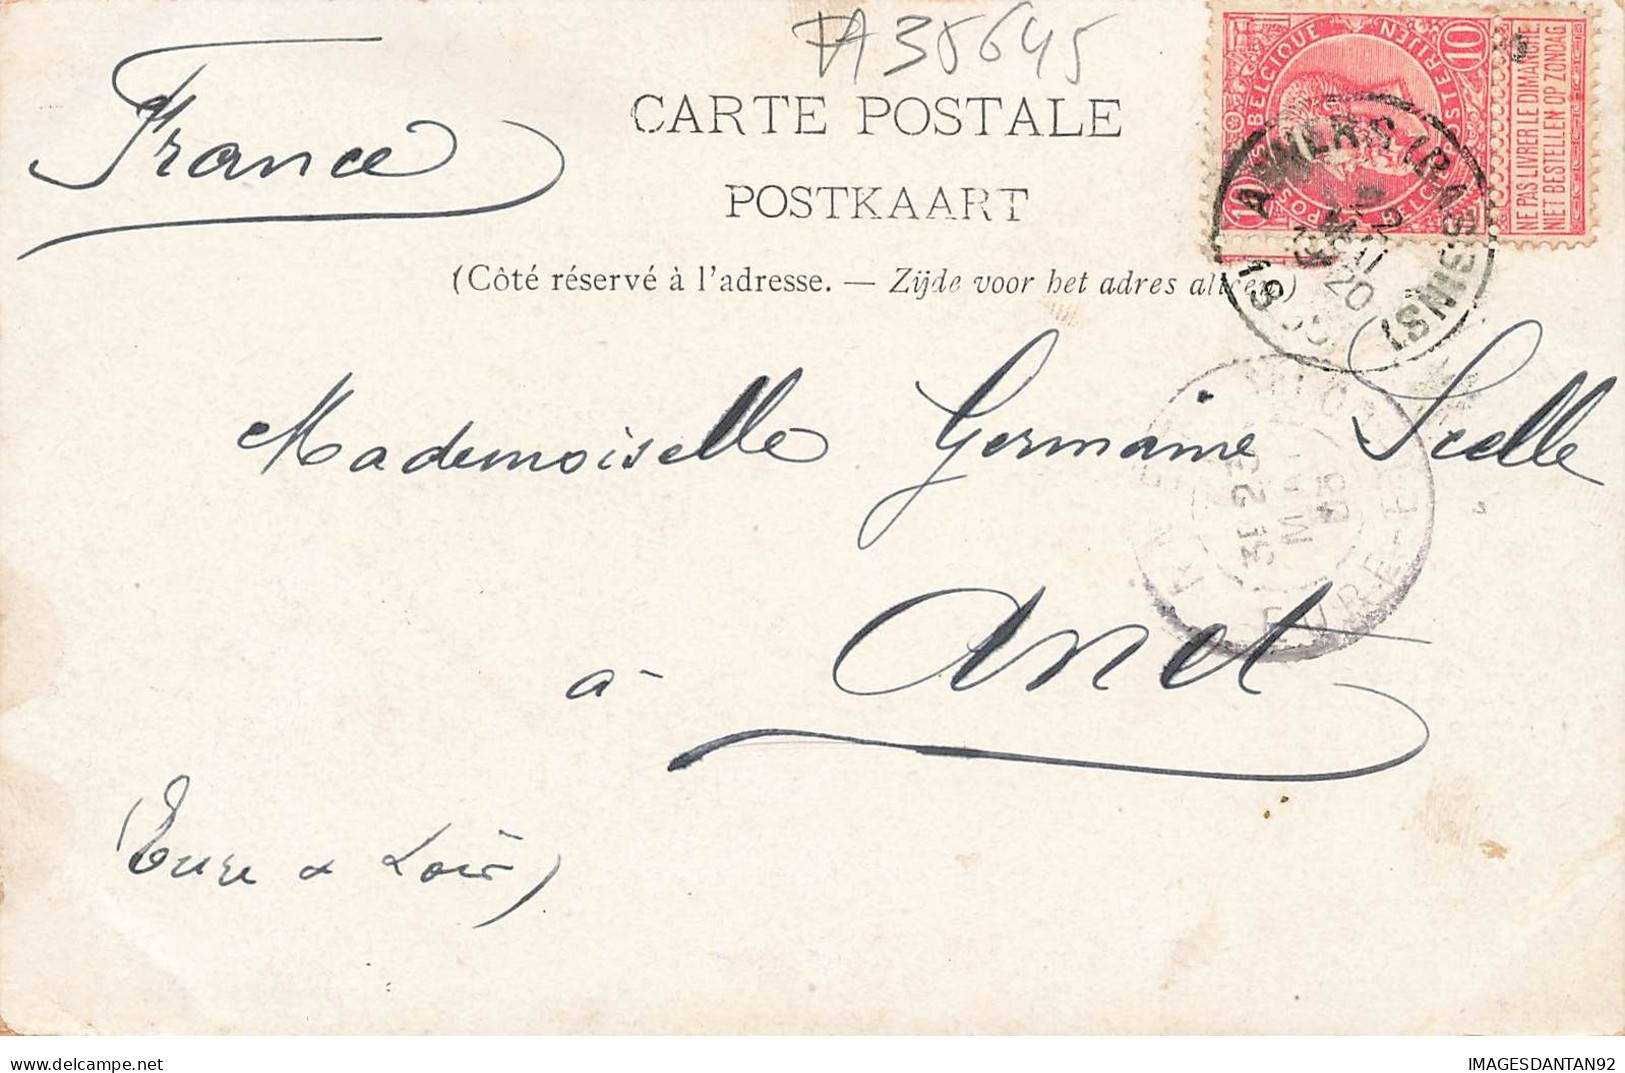 FA 35645
CARTE POSTALE
POSTKAART
(Côté réservé à l'adresse. — Zijde voor het adres alleen)
France
BELGIQUE
10
10
NE PAS LIVRER LE DIMANCHE
NIET BESTELLEN OP ZONDAG
ANVERS (BASSINS)
Mademoiselle Germaine Scelle
à Anet
(Eure & Loir)
EURE-ET
IMAGESDANTAN92